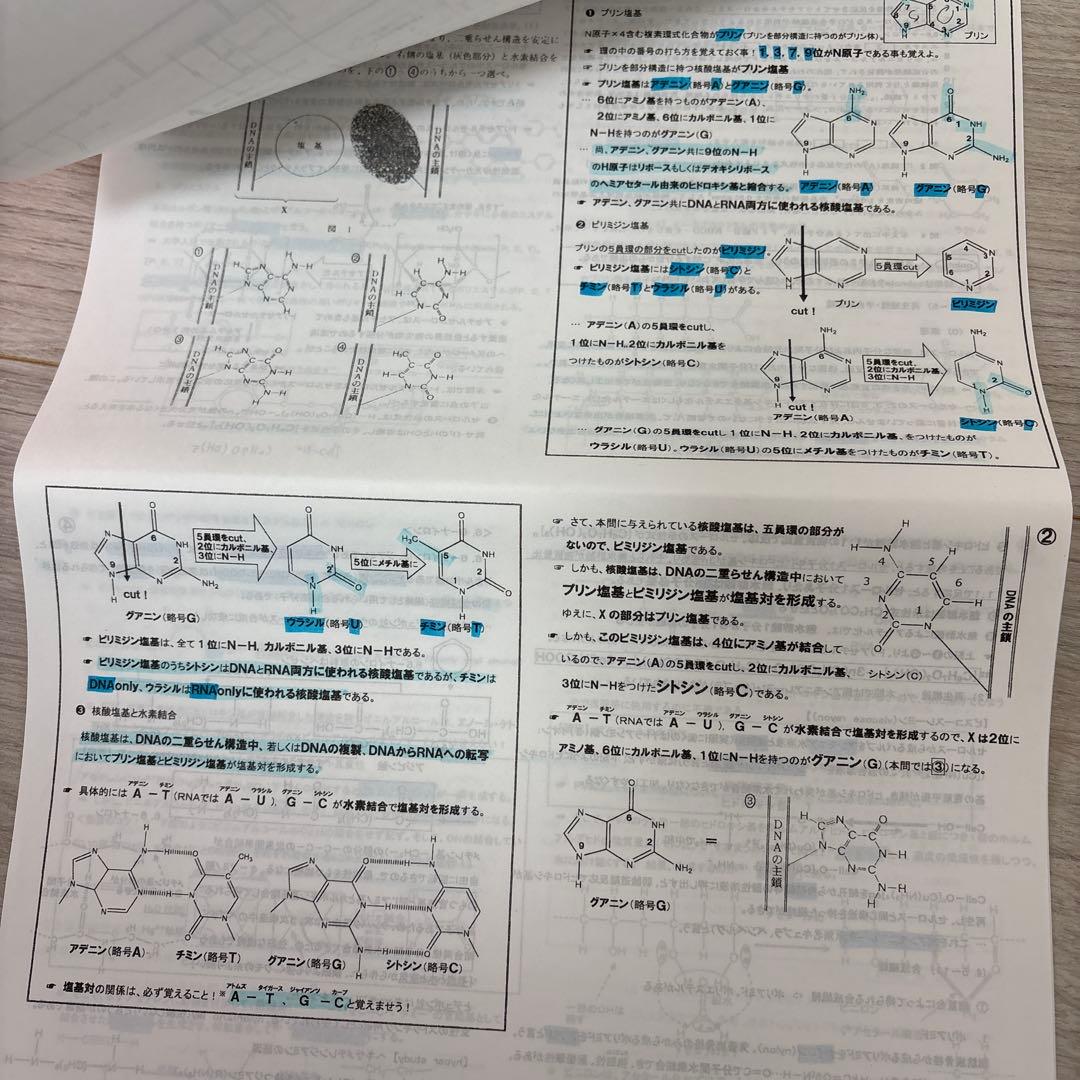 り、二重らせん構造を安定に
右側の塩基(灰色部分)と水素結合を
下の① ④のうちから一つ選べ。
DNAの主鎖
塩基
DNAの主鎖
X
図 1
①
DNAの主鎖
②
DNAの主鎖
③
DNAの主鎖
④
DNAの主鎖
❶ プリン塩基
N原子×4含む複素環式化合物がプリン(プリンを部分構造に持つのがプリン体)。
プリン
☞ 環の中の番号の打ち方を覚えておく事！1, 3, 7, 9位がN原子である事も覚えよ。
☞ プリンを部分構造に持つ核酸塩基がプリン塩基
☞ プリン塩基はアデニン(略号A)とグアニン(略号G)。
… 6位にアミノ基を持つものがアデニン(A)、
2位にアミノ基、6位にカルボニル基、1位に
N−Hを持つのがグアニン(G)
… 尚、アデニン、グアニン共に9位のN−H
のH原子はリボースもしくはデオキシリボース
のヘミアセタール由来のヒドロキシ基と縮合する。
アデニン(略号A)
グアニン(略号G)
☞ アデニン、グアニン共にDNAとRNA両方に使われる核酸塩基である。
❷ ピリミジン塩基
プリンの5員環の部分をcutしたのがピリミジン。
☞ ピリミジン塩基にはシトシン(略号C)と
チミン(略号T)とウラシル(略号U)がある。
cut！
プリン
5員環cut
ピリミジン
… アデニン(A)の5員環をcutし、
1位にN−H、2位にカルボニル基を
つけたものがシトシン(略号C)
cut！
アデニン(略号A)
5員環をcut、
2位にカルボニル基、
3位にN−H
シトシン(略号C)
… グアニン(G)の5員環をcutし1位にN−H、2位にカルボニル基、をつけたものが
ウラシル(略号U)。ウラシル(略号U)の5位にメチル基をつけたものがチミン(略号T)。
cut！
グアニン(略号G)
5員環をcut、
2位にカルボニル基、
3位にN−H
ウラシル(略号U)
5位にメチル基に
チミン(略号T)
☞ ピリミジン塩基は、全て1位にN−H、カルボニル基、3位にN−Hである。
☞ ピリミジン塩基のうちシトシンはDNAとRNA両方に使われる核酸塩基であるが、チミンは
DNAonly、ウラシルはRNAonlyに使われる核酸塩基である。
❸ 核酸塩基と水素結合
核酸塩基は、DNAの二重らせん構造中、若しくはDNAの複製、DNAからRNAへの転写
においてプリン塩基とピリミジン塩基が塩基対を形成する。
アデニン チミン アデニン ウラシル グアニン シトシン
☞ 具体的には A−T(RNAでは A−U)、G−C が水素結合で塩基対を形成する。
アデニン(略号A)
チミン(略号T)
グアニン(略号G)
シトシン(略号C)
アトムズ タイガース ジャイアンツ カープ
☞ 塩基対の関係は、必ず覚えること！※A−T、G−Cと覚えませう！
②
☞ さて、本問に与えられている核酸塩基は、五員環の部分が
ないので、ピミリジン塩基である。
☞ しかも、核酸塩基は、DNAの二重らせん構造中において
プリン塩基とピミリジン塩基が塩基対を形成する。
ゆえに、Xの部分はプリン塩基である。
☞ しかも、このピミリジン塩基は、4位にアミノ基が結合して
いるので、アデニン(A)の5員環をcutし、2位にカルボニル基、
3位にN−Hをつけたシトシン(略号C)である。
シトシン(C)
DNAの主鎖
アデニン チミン アデニン ウラシル グアニン シトシン
☞ A−T(RNAでは A−U)、G−C が水素結合で塩基対を形成するので、Xは2位に
アミノ基、6位にカルボニル基、1位にN−Hを持つのがグアニン(G)(本問では③)になる。
グアニン(略号G)
＝
③
DNAの主鎖